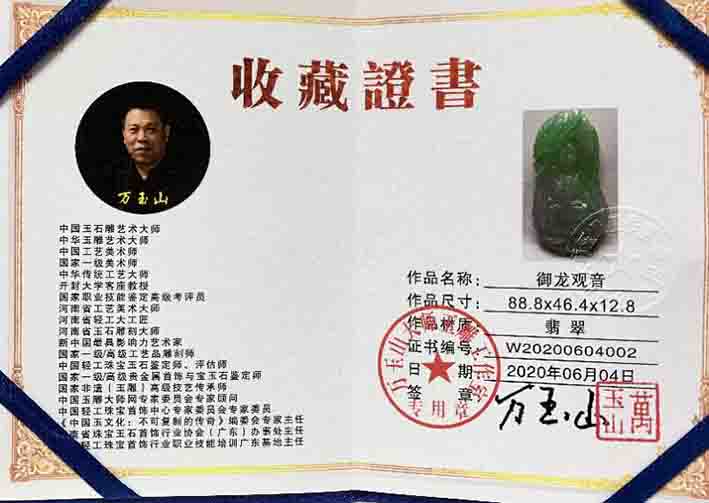 收藏證書
万玉山
中国玉石雕艺术大师
中华玉雕艺术大师
中国工艺美术师
国家一级美术师
中华传统工艺大师
开封大学客座教授
国家职业技能鉴定高级考评员
河南省工艺美术大师
河南省轻工大工匠
河南省玉石雕刻大师
新中国最具影响力艺术家
国家一级/高级工艺品雕刻师
中国轻工珠宝玉石鉴定师、评估师
国家一级/高级贵金属首饰与宝玉石鉴定师
国家非遗（玉雕）高级技艺传承师
中国玉雕大师网专家委员会专家顾问
中国轻工珠宝首饰中心专家委员会专家委员
《中国玉文化：不可复制的传奇》编委会专家主任
南省珠宝玉石首饰行业协会（广东）办事处主任
轻工珠宝首饰行业职业技能培训广东基地主任
作品名称：御龙观音
作品尺寸：88.8x46.4x12.8
作品材质：翡翠
证书编号：W20200604002
日期：2020年06月04日
签章：万玉山
萬玉山
专用章